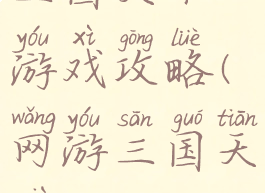 yóu xì gōng lüè
游戏攻略(
wǎng yóu sān guó tiān
网游三国天